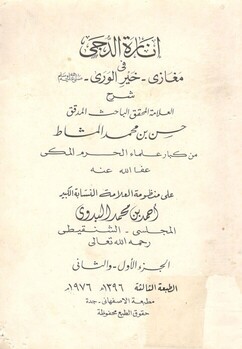 إنارة الدجى
في
مغازي - خير الورى - صلى الله عليه وسلم
شرح
العلامة المحقق الباحث المدقق
حسن بن محمد المشاط
من كبار علماء الحرم المكي
عفا الله عنه
على منظومة العلامة النسابة الكبير
أحمد بن محمد البدوي
المجلسي - الشنقيطي
رحمه الله تعالى
الجزء الأول - والثاني
الطبعة الثالثة ١٣٩٦هـ ١٩٧٦م
مطبعة الأصفهاني - جدة
حقوق الطبع محفوظة